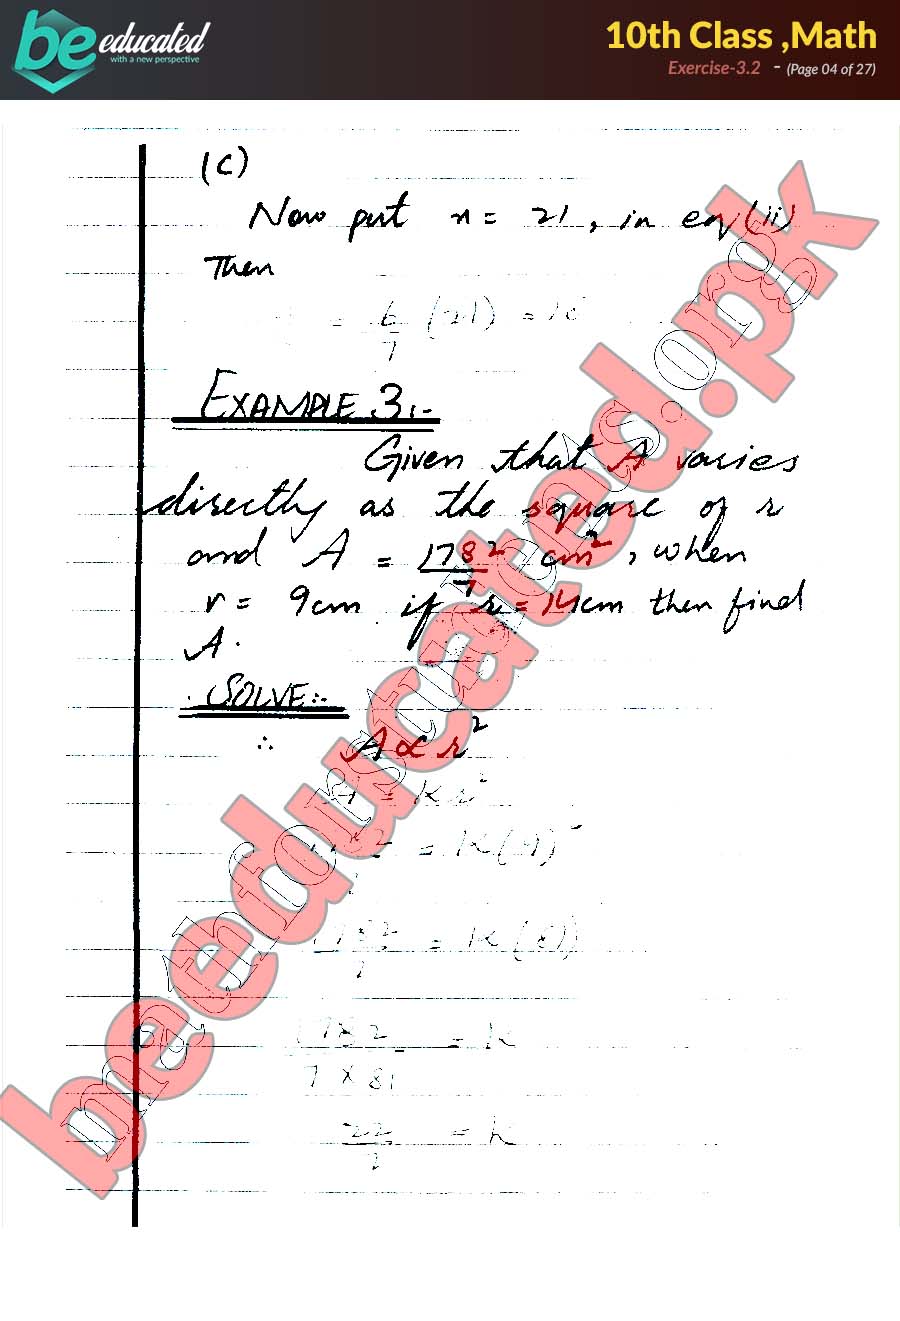 be educated
with a new perspective
10th Class ,Math
Exercise-3.2 - (Page 04 of 27)
(C)
Now put x = 21, in eq (ii)
Then
= 6/7 (21) = 18
EXAMPLE 3:-
Given that A varies
directly as the square of r
and A = 1782/7 cm², when
r = 9cm if r = 14cm then find
A.
SOLVE:-
∴ A ∝ r²
A = Kr²
= K(9)²
1782/7 = K(81)
1782/7 × 81 = K
22/7 = K
beeducated.pk